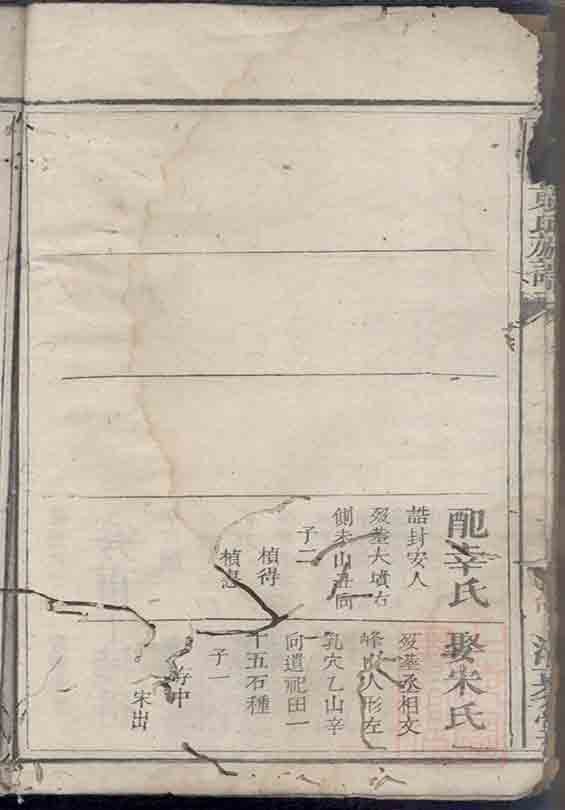 配辛氏
誥封安人
歿塟大墳右
側未山丑向
子二
楨得
楨忠
娶宋氏
歿塟丞相文
峰人形左
乳穴乙山辛
向遺祀田一
十五石種
子一
中
宋出
氏族譜